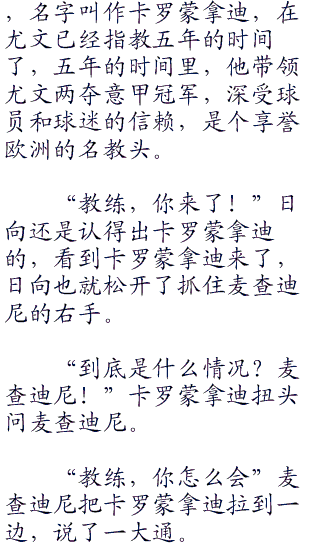 ，名字叫作卡罗蒙拿迪，在
尤文已经指教五年的时间
了，五年的时间里，他带领
尤文两夺意甲冠军，深受球
员和球迷的信赖，是个享誉
欧洲的名教头。
“教练，你来了！”日
向还是认得出卡罗蒙拿迪
的，看到卡罗蒙拿迪来了，
日向也就松开了抓住麦查迪
尼的右手。
“到底是什么情况？麦
查迪尼！”卡罗蒙拿迪扭头
问麦查迪尼。
“教练，你怎么会”麦
查迪尼把卡罗蒙拿迪拉到一
边，说了一大通。